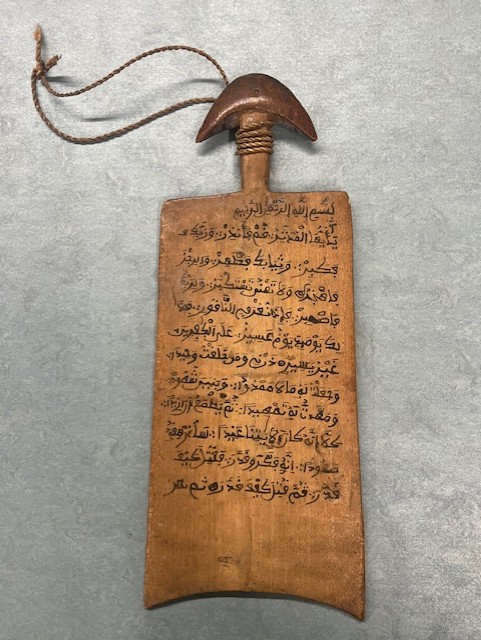 بسم الله الرحمن الرحيم
يأيها المدثر قم فأنذر وربك
فكبر وثيابك فطهر والرجز
فاهجر ولا تمنن تستكثر ولربك
فاصبر فإذا نقر في الناقور فذ
لك يومئذ يوم عسير على الكفرين
غير يسير ذرني ومن خلقت وحيدا
وجعلت له مالا ممدودا وبنين شهودا
ومهدت له تمهيدا ثم يطمع أن أزيد
كلا إنه كان لأيتنا عنيدا سأرهقه
صعودا إنه فكر وقدر فقتل كيف
قدر ثم قتل كيف قدر ثم نظر